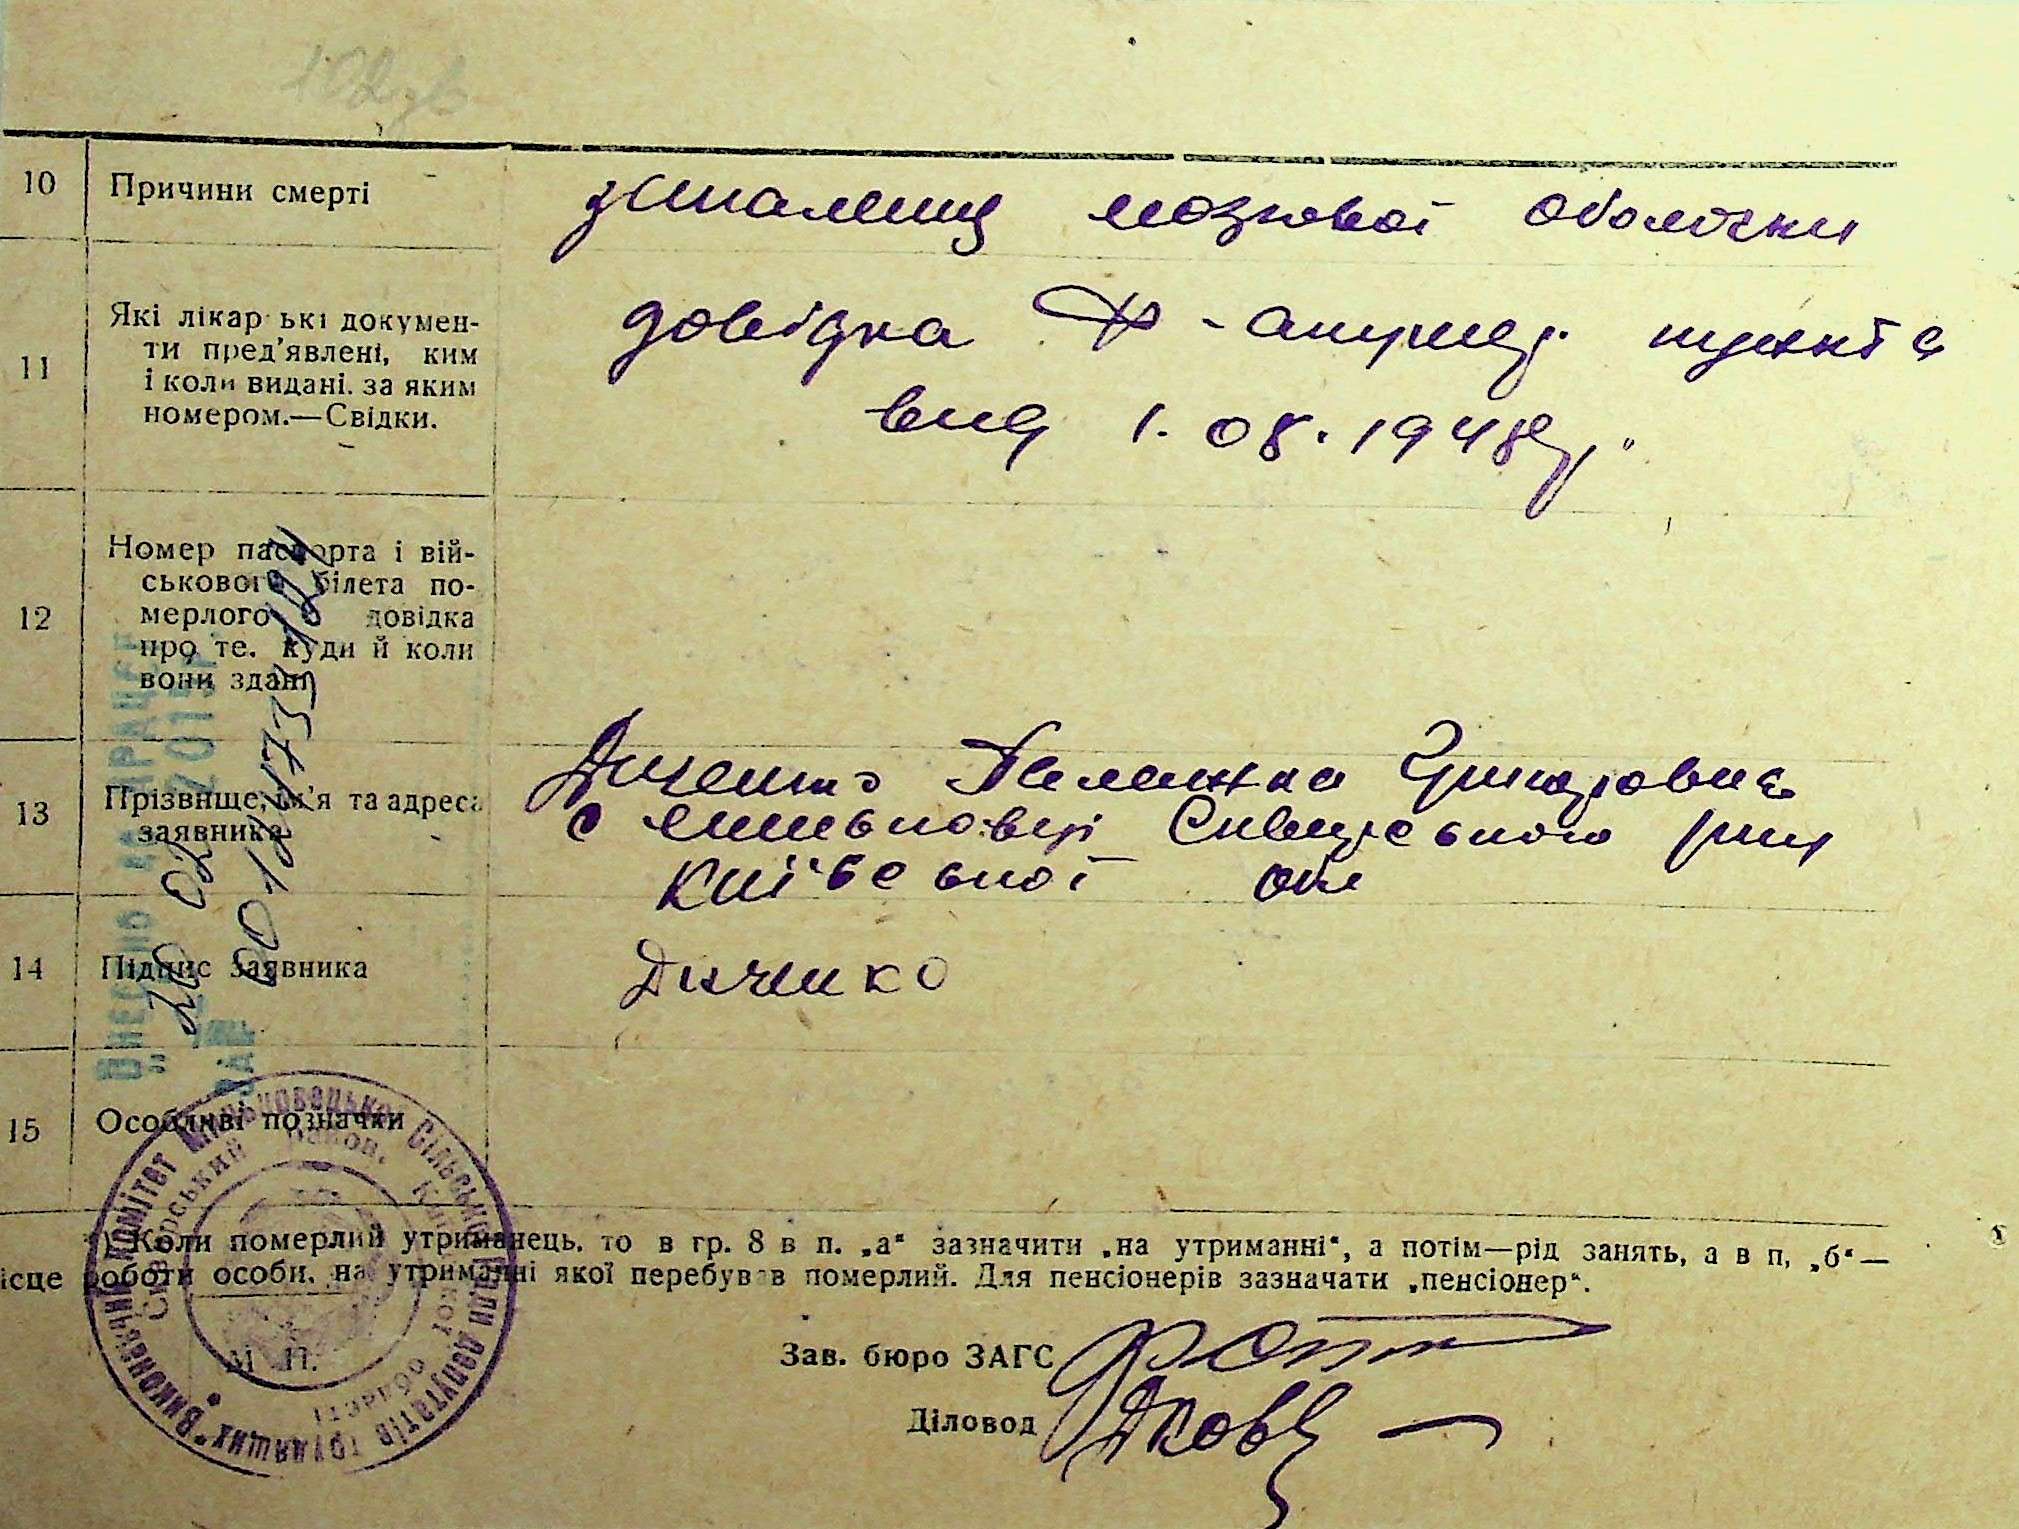 10 Причини смерті запалення мозкової оболочки
11 Які лікарські докумен-
ти пред'явлені, ким
і коли видані. за яким
номером.—Свідки.
довідка Ф-акушер. пункта
вид 1.08.1948р.
12 Номер паспорта і вій-
ськового білета по-
мерлого довідка
про те. куди й коли
вони здані
13 Прізвище, ім'я та адреса
заявника
Дяченко Пелажка Григоровна
с Миньковці Сквирського рну
Київської обл
14 Підпис заявника Дяченко
15 Особливі позначки
*) Коли померлий утриманець. то в гр. 8 в п. „а“ зазначити „на утриманні“, а потім—рід занять, а в п, „б“—
ісце роботи особи. на утриманні якої перебував померлий. Для пенсіонерів зазначати „пенсіонер“.
М П.
Зав. бюро ЗАГС
Діловод
Виконавчий комітет Миньковецької Сільської Ради депутатів трудящих
Сквирський район. Київської
Внесено
20 02 201
0012473